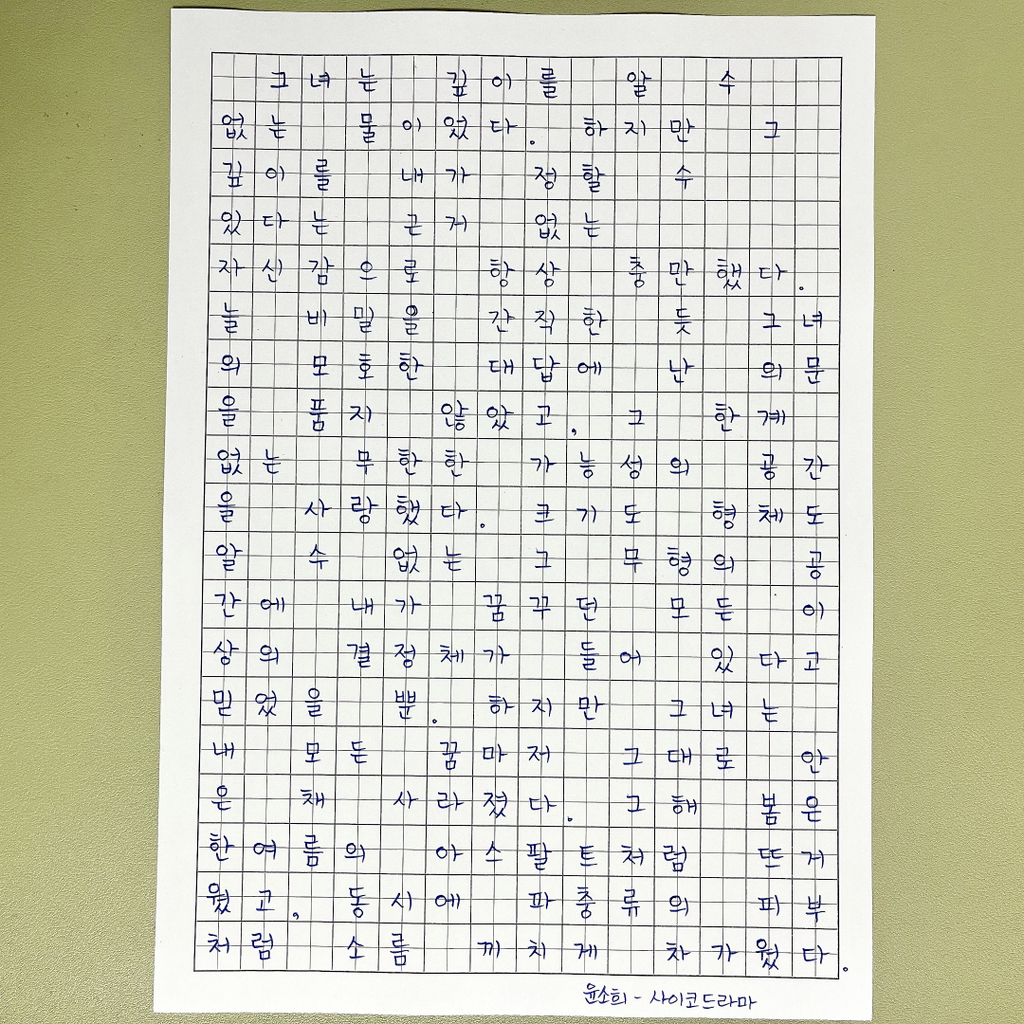 그녀는 깊이를 알 수
없는 물이었다. 하지만 그
깊이를 내가 정할 수
있다는 근거 없는
자신감으로 항상 충만했다.
늘 비밀을 간직한 듯 그녀
의 모호한 대답에 난 의문
을 품지 않았고, 그 한계
없는 무한한 가능성의 공간
을 사랑했다. 크기도 형체도
알 수 없는 그 무형의 공
간에 내가 꿈꾸던 모든 이
상의 결정체가 들어 있다고
믿었을 뿐. 하지만 그녀는
내 모든 꿈마저 그대로 안
은 채 사라졌다. 그해 봄은
한여름의 아스팔트처럼 뜨거
웠고, 동시에 파충류의 피부
처럼 소름 끼치게 차가웠다.
윤소희 - 사이코드라마